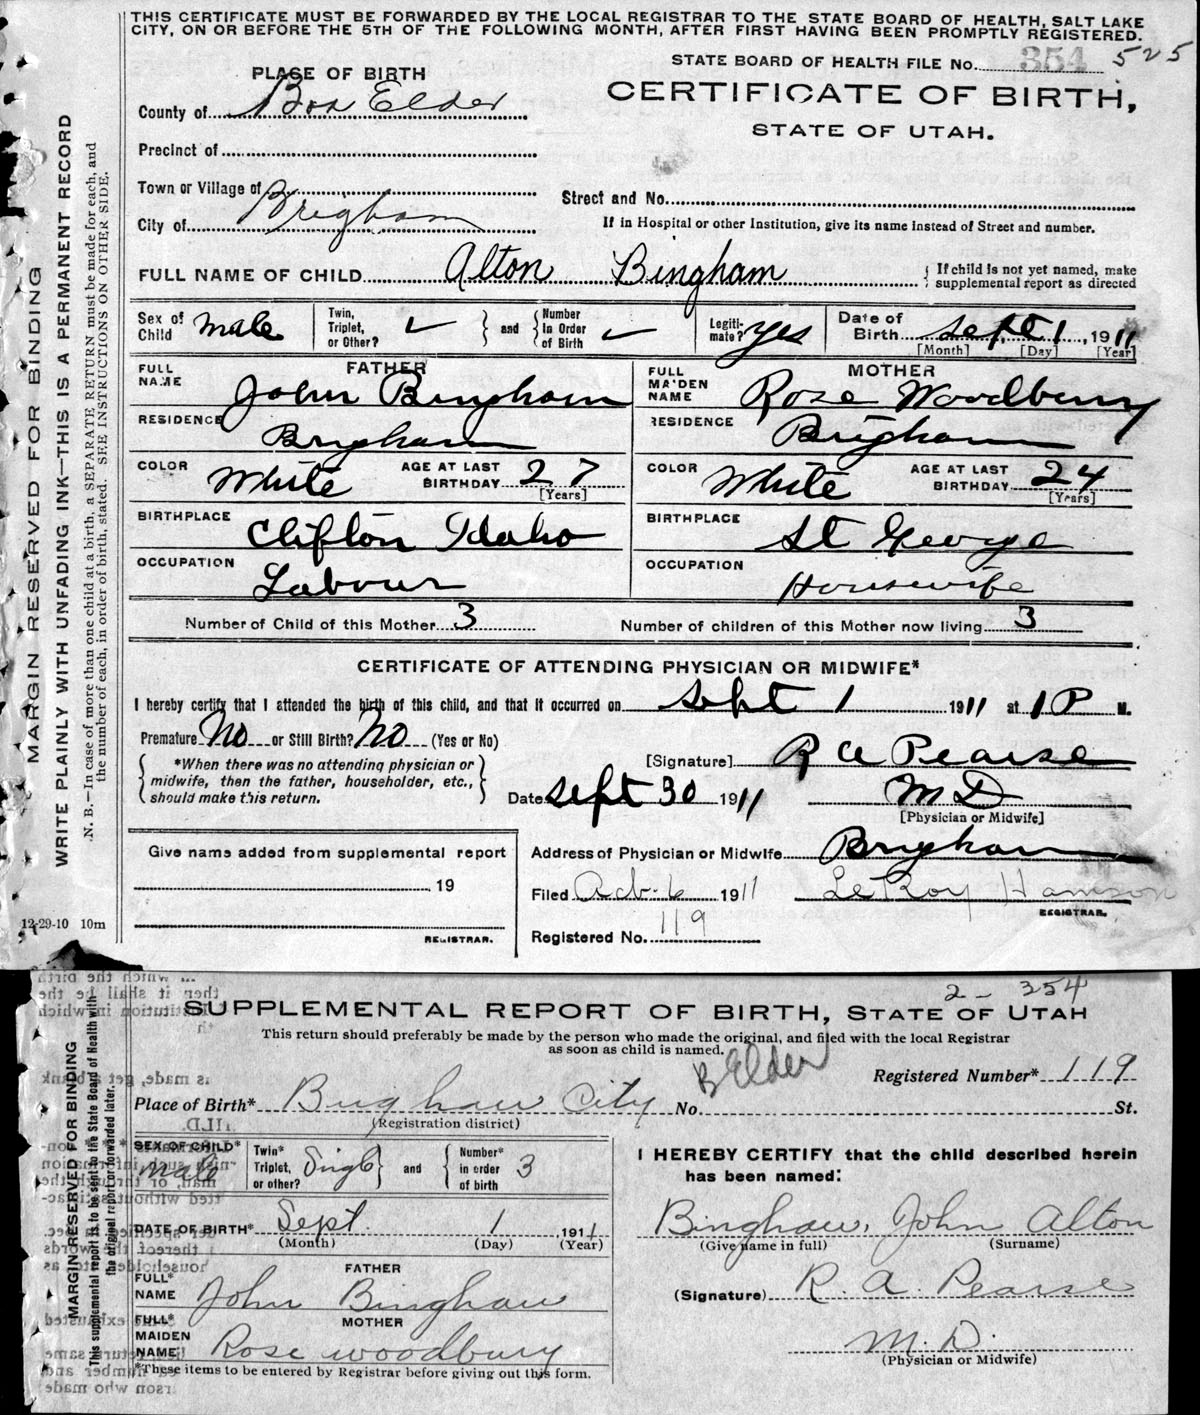 THIS CERTIFICATE MUST BE FORWARDED BY THE LOCAL REGISTRAR TO THE STATE BOARD OF HEALTH, SALT LAKE
CITY, ON OR BEFORE THE 5TH OF THE FOLLOWING MONTH, AFTER FIRST HAVING BEEN PROMPTLY REGISTERED.
STATE BOARD OF HEALTH FILE No. 354 525
PLACE OF BIRTH
CERTIFICATE OF BIRTH,
STATE OF UTAH.
County of Box Elder
Precinct of
Town or Village of
Street and No.
City of Brigham
If in Hospital or other Institution, give its name instead of Street and number.
FULL NAME OF CHILD Alton Bingham
If child is not yet named, make
supplemental report as directed
Sex of Child male
Twin, Triplet, or Other? ✓ and Number in Order of Birth ✓
Legitimate? yes
Date of Birth Sept 1, 1911
[Month] [Day] [Year]
FATHER
FULL NAME John Bingham
RESIDENCE Brigham
COLOR White AGE AT LAST BIRTHDAY 27
[Years]
BIRTHPLACE Clifton Idaho
OCCUPATION Labour
MOTHER
FULL MAIDEN NAME Rose Woodbury
RESIDENCE Brigham
COLOR White AGE AT LAST BIRTHDAY 24
[Years]
BIRTHPLACE St George
OCCUPATION Housewife
Number of Child of this Mother 3
Number of children of this Mother now living 3
CERTIFICATE OF ATTENDING PHYSICIAN OR MIDWIFE*
I hereby certify that I attended the birth of this child, and that it occurred on Sept 1 1911 at 1 P M.
Premature No or Still Birth? No (Yes or No)
*When there was no attending physician or
midwife, then the father, householder, etc.,
should make this return.
[Signature] R A Pearse
M D
[Physician or Midwife]
Date Sept 30 1911
Give name added from supplemental report
19
REGISTRAR.
Address of Physician or Midwife Brigham
Filed 6 1911
LeRoy
REGISTRAR.
Registered No. 119
12-29-10 10m
MARGIN RESERVED FOR BINDING
WRITE PLAINLY WITH UNFADING INK—THIS IS A PERMANENT RECORD
N. B.—In case of more than one child at a birth, a SEPARATE RETURN must be made for each, and
the number of each, in order of birth, stated. SEE INSTRUCTIONS ON OTHER SIDE.
2 - 354
SUPPLEMENTAL REPORT OF BIRTH, STATE OF UTAH
This return should preferably be made by the person who made the original, and filed with the local Registrar
as soon as child is named.
B Elder
Registered Number* 119
Place of Birth* Brigham City No. St.
(Registration district)
SEX OF CHILD* male
Twin* Triplet, or other? Single and Number* in order of birth 3
DATE OF BIRTH* Sept. 1, 1911
(Month) (Day) (Year)
FATHER
FULL* NAME John Bingham
MOTHER
FULL* MAIDEN NAME Rose Woodbury
*These items to be entered by Registrar before giving out this form.
I HEREBY CERTIFY that the child described herein
has been named:
Bingham, John Alton
(Give name in full) (Surname)
(Signature) R. A. Pearse
M. D.
(Physician or Midwife)
MARGIN RESERVED FOR BINDING
This supplemental report is to be sent to the State Board of Health with
the original report or forwarded later.